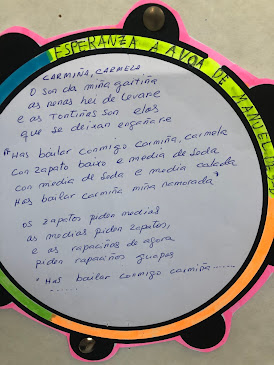 ESPERANZA A AVOA DE MANUELA
CARMIÑA, CARMELA
O son da miña gaitiña
as nenas hei de levare
e as TonTiñas son elas
que se deixan engañare
"Has bailar conmigo Carmiña, Carmela
con zapato baixo e media de seda
con media de seda e media calada
Has bailar Carmiña miña namorada"
os zapatos piden medias
as medias piden zapatos,
e as rapaciñas de agora
piden rapaciños guapos
"Has bailar conmigo Carmiña.......
......